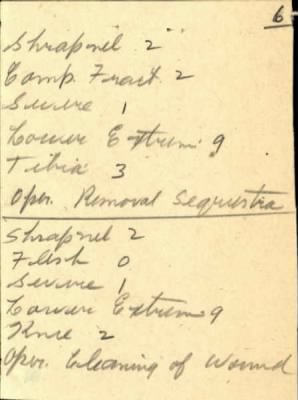 6
Shrapnel 2
Comp. Fract. 2
Severe 1
Lower Extrem. 9
Tibia 3
Oper. Removal Sequestra
Shrapnel 2
Flesh 0
Severe 1
Lower Extrem 9
Knee 2
Oper. Cleaning of Wound